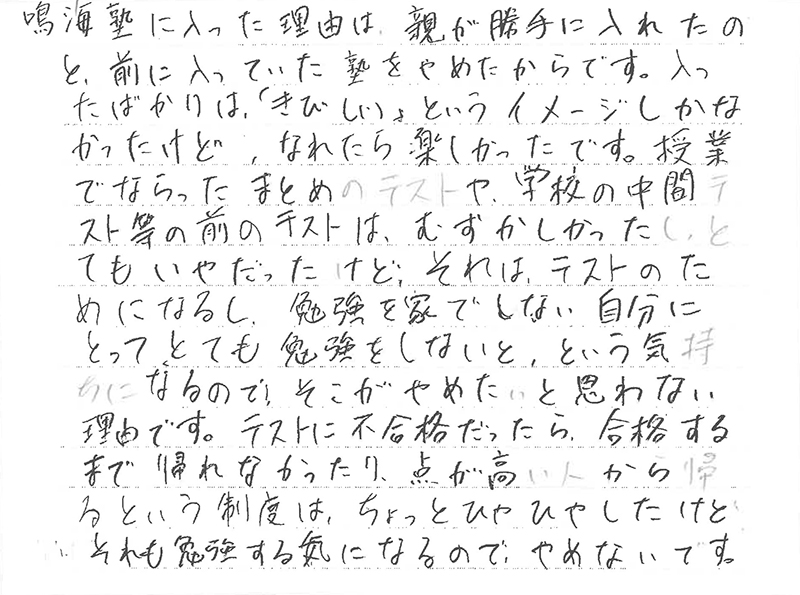 鳴海塾に入った理由は、親が勝手に入れたの
と、前に入っていた塾をやめたからです。入っ
たばかりは、「きびしい」というイメージしかな
かったけど、なれたら楽しかったです。授業
でならったまとめのテストや、学校の中間テ
スト等の前のテストは、むずかしかったし、と
てもいやだったけど、それは、テストのた
めになるし、勉強を家でしない自分に
とって、とても勉強をしないと、という気持
ちになるので、そこがやめたいと思わない
理由です。テストに不合格だったら、合格する
まで帰れなかったり、点が高い人から帰
るという制度は、ちょっとひやひやしたけど
それも勉強する気になるので、やめないです。